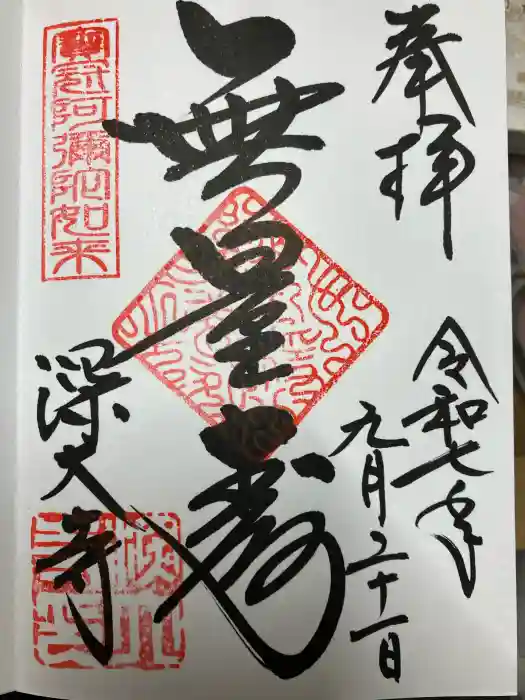 奉拝
令和七年
九月二十一日
無量寿
寳冠阿彌陀如来
深大寺